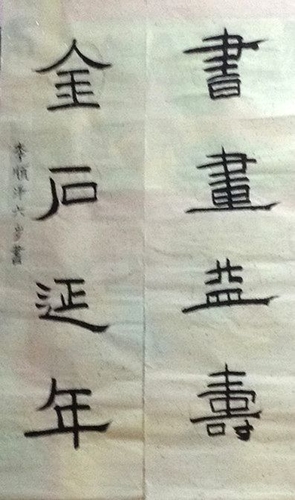 書畫益壽
金石延年
李順洋六岁書